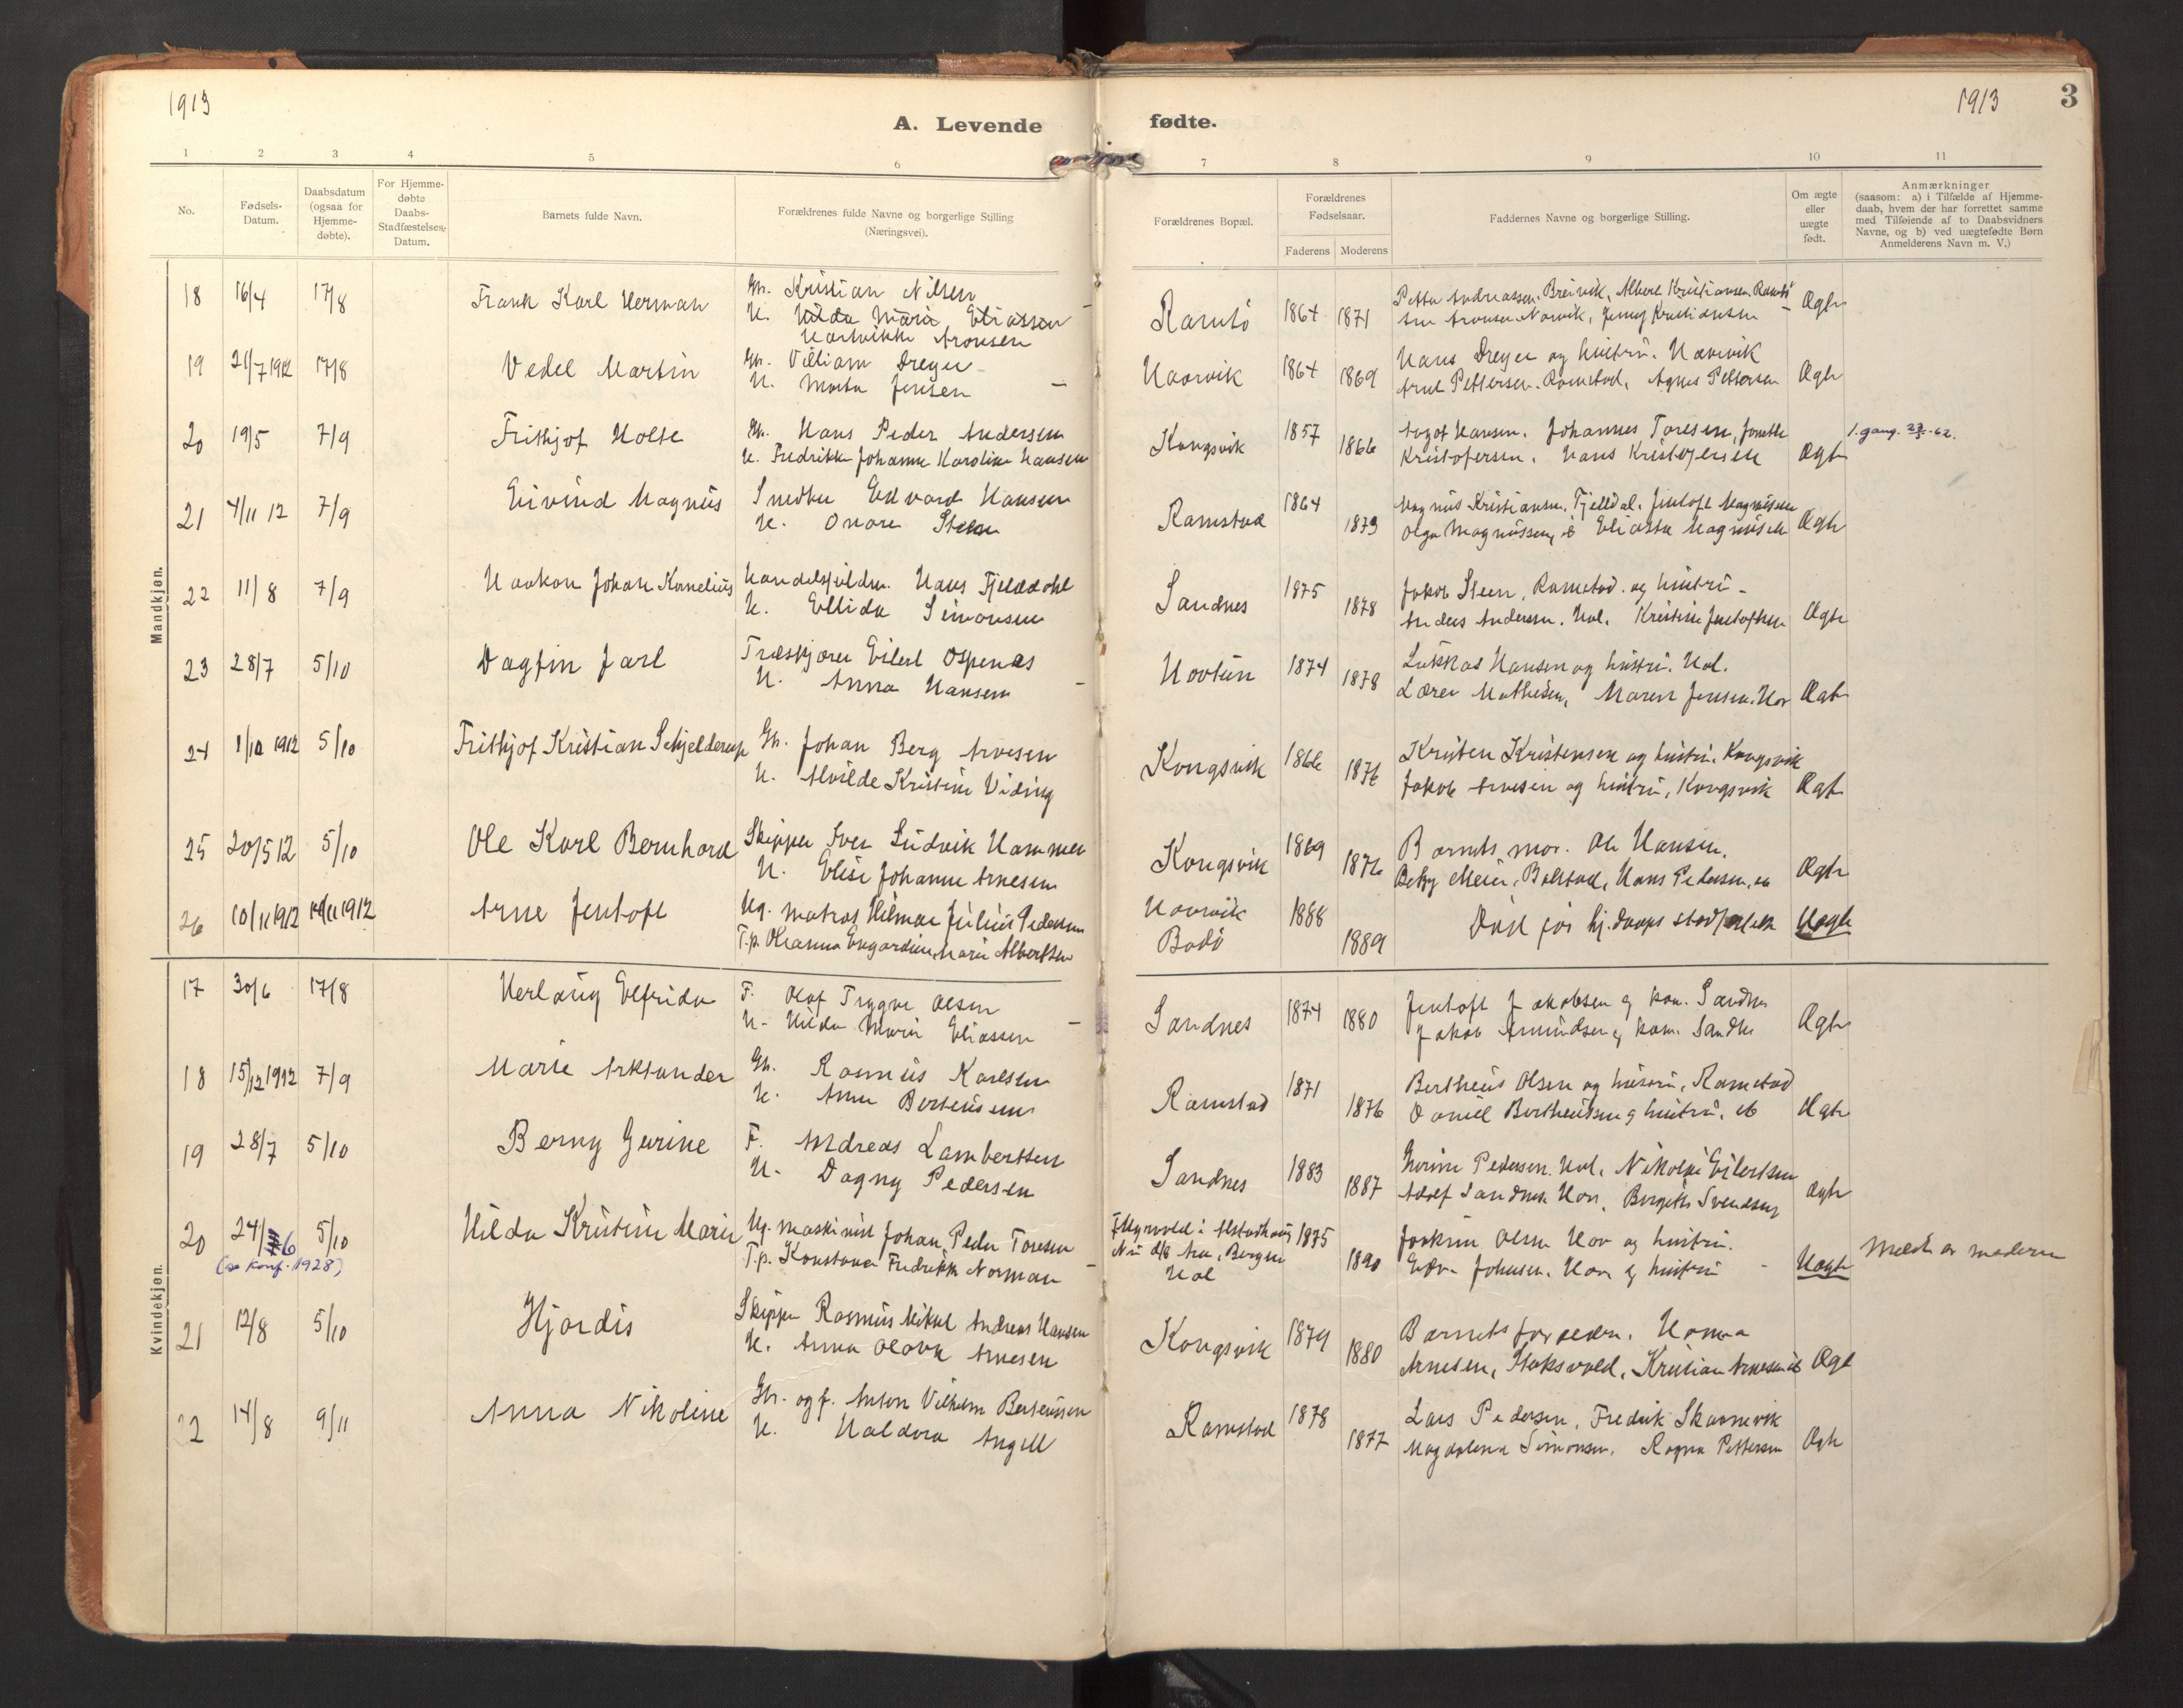 1913
1913
3
A. Levende fødte.
1 2 3 4 5 6 7 8 9 10 11
No.
Fødsels-
Datum.
Daabsdatum
(ogsaa for
Hjemme-
døbte).
For Hjemme-
døbte
Daabs-
Stadfæstelses-
Datum.
Barnets fulde Navn.
Forældrenes fulde Navne og borgerlige Stilling
(Næringsvei).
Forældrenes Bopæl.
Forældrenes
Fødselsaar.
Faderens Moderens
Faddernes Navne og borgerlige Stilling.
Om ægte
eller
uægte
født.
Anmærkninger
(saasom: a) i Tilfælde af Hjemme-
daab, hvem der har forrettet samme
med Tilføiende af to Daabsvidners
Navne, og b) ved uægtefødte Børn
Anmelderens Navn m. V.)
Mandkjøn.
18 16/4 17/8 Frank Karl Herman Gbr. Kristian Nilsen
H. Hilda Marie Eliassen
Hartvikke Aronsen
Ramsö 1864 1871 Petter Andreassen, Breivik, Albert Kristiansen
Narvik, Jenny Kristiansen Ægte
19 21/7 1912 17/8 Vedel Martin Gbr. Villiam Dreyer
H. Marta Jensen
Haarvik 1864 1869 Hans Dreyer og hustru. Haarvik
Pettersen. Ramstad, Agnes Pettersen Ægte
20 19/5 7/9 Frithjof Holte Gbr. Hans Peder Andersen
H. Fredrikke Johanne Karoline Hansen
Kongsvik 1857 1866 Aagot Hansen, Johannes Toresen,
Kristofersen, Hans Kristofersen Ægte
1. gang.
21 4/11 12 7/9 Eivind Magnus Snedker Edvard Hansen
H. Onare Steen
Ramstad 1864 1873 Magnus Kristiansen, Fjelldal, Jentoft Magnussen
Olga Magnussen, Magnussen Ægte
22 11/8 7/9 Haakon Johan Kornelius Hans Fjelldahl
H. Ellida Simonsen
Sandnes 1875 1878 Jakob Steen, Ramstad og hustru
Anders Andersen, Hol, Kristine Jentoftsen Ægte
23 28/7 5/10 Dagfin Jarl Træskjærer Eilert Ospenes
H. Anna Hansen
Hovtun 1874 1878 Lukkas Hansen og hustru. Hol.
Lærer Mathisen, Maren Jensen. Hov Ægte
24 1912 5/10 Frithjof Kristian Schjelderup Gbr. Johan Berg Arnesen
H. Alvilde Kristine Viding
Kongsvik 1866 1876 Kristen Kristensen og hustru. Kongsvik
Jakob Arnesen og hustru, Kongsvik Ægte
25 20/5 12 5/10 Ole Karl Bernhard Skipper Iver Ludvik Hammer
H. Elise Johanne Arnesen
Kongsvik 1869 1876 Barnets mor. Ole Hansen.
Betzy Meier, Bolstad, Hans Pedersen, Ægte
26 10/11 1912 1912 Arne Jentoft Ug. matros Hilmar Julius Pedersen
T.p. Oleanna Engardine Marie Albertsen
Haarvik
Bodö
1888 1889 Död för hj.daaps stadfestelse Uægte
Kvindekjøn.
17 30/6 17/8 Herlaug Elfrida F. Olaf Trygve Olsen
H. Hilda Marie Eliassen
Sandnes 1874 1880 Jentoft Jakobsen og kone. Sandnes
Jakob Amundsen og kone. Sandnes Ægte
18 15/12 1912 7/9 Marie Arksander Gbr. Rasmus Karlsen
H. Anna Berteussen
Ramstad 1871 1876 Bertheus Olsen og hustru, Ramstad
Daniel Bertheussen og hustru, Ægte
19 28/7 5/10 Berny Gurine F. Andreas Lambertsen
H. Dagny Pedersen
Sandnes 1883 1887 Gurine Pedersen. Hol, Nikolai Eilertsen
Adolf Sandnes. Hov, Bergitte Svendsen Ægte
20 24/6 5/10 Hilda Kristine Marie Ug. maskinist Johan Peder Toresen
(se konf. 1928) T.p. Konstance Fredrikke Norman
i Alstadhaug
Nu Bergen
Hol
1875 1890 Joakim Olsen Hov og hustru.
Johnsen. Hov og hustru Uægte
Meldt av moderen
21 12/8 5/10 Hjördis Skipper Rasmus Mikal Andreas Hansen
H. Anna Olava Arnesen
Kongsvik 1879 1880 Barnets foreldre. Hanna
Arnesen, Stoksvold, Kristian Arnesen Ægte
22 14/8 9/11 Anna Nikoline Gbr. og f. Anton Vilhelm Berteussen
H. Haldora Angell
Ramstad 1878 1877 Lars Pedersen, Fredrik Skarnevik
Magdalena Simonsen, Ragna Pettersen Ægte